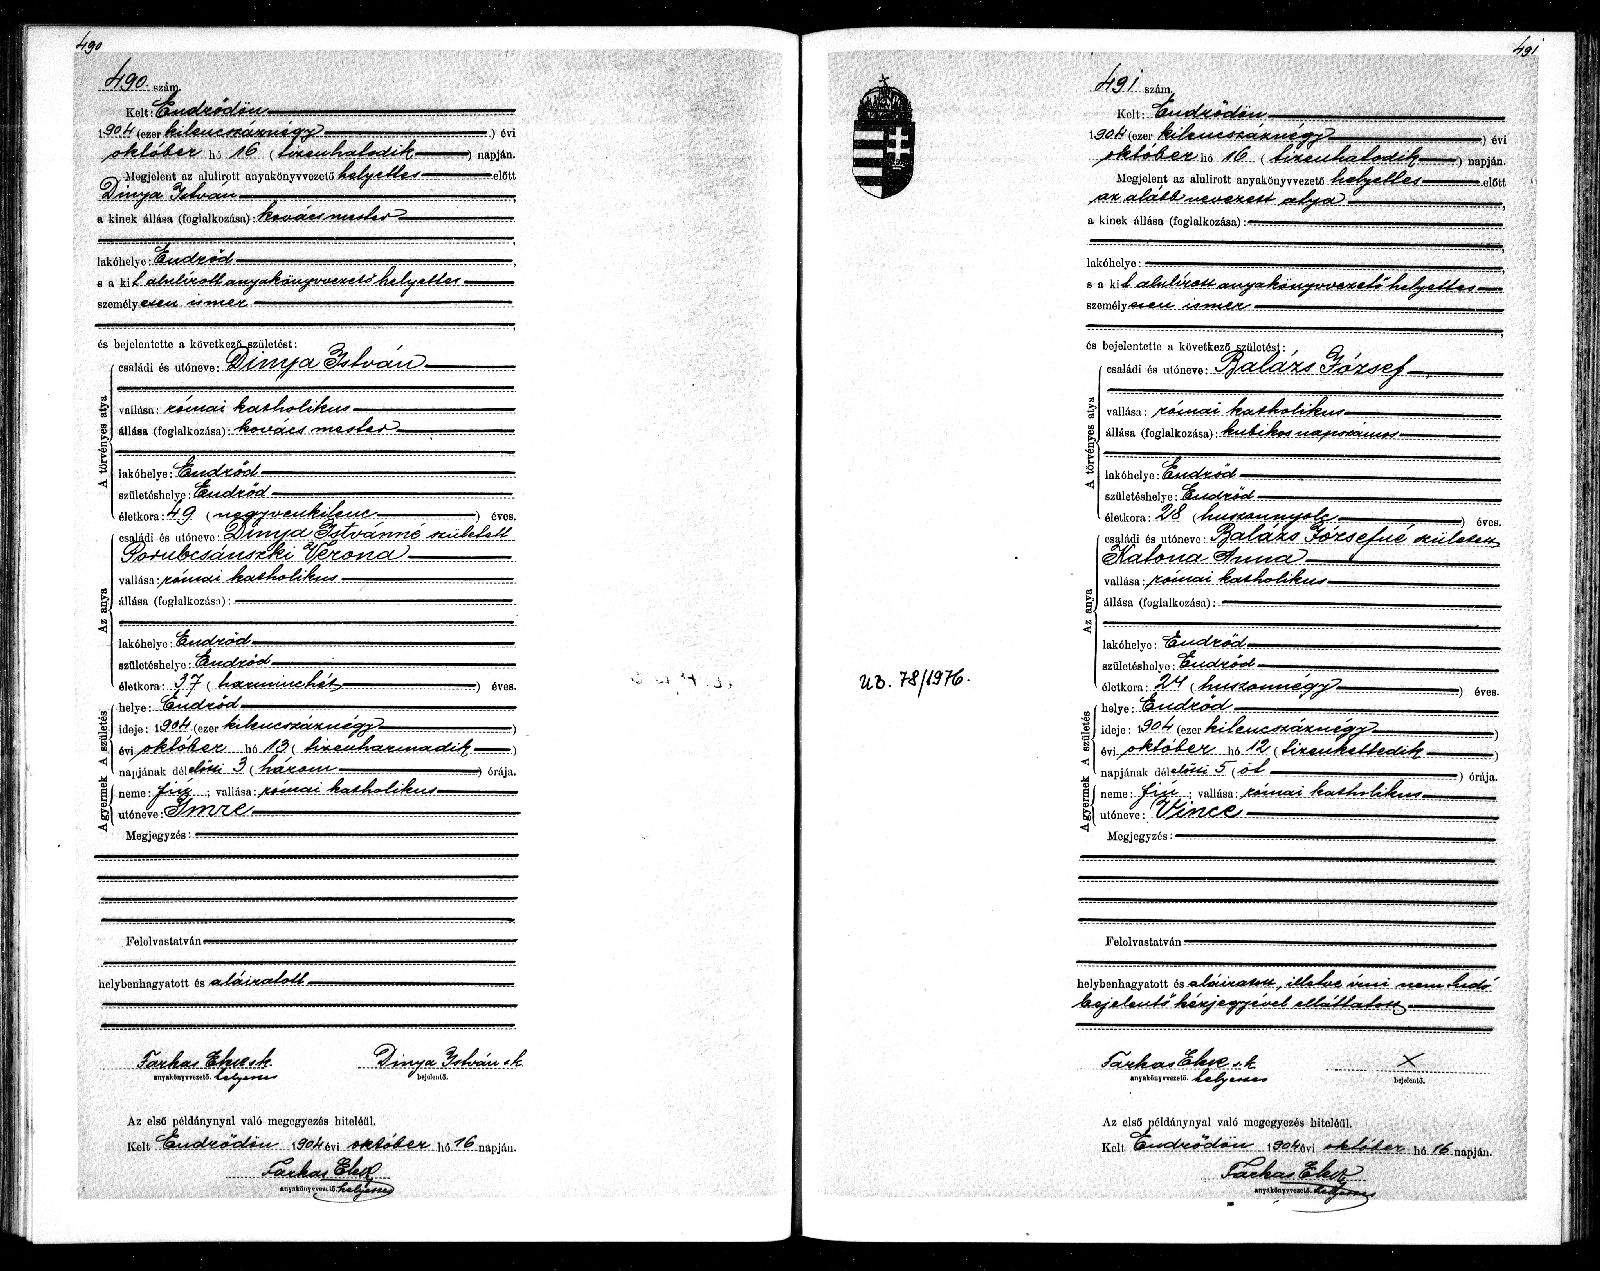 490
490. szám.
Kelt: Endrődön
1904 (ezer kilencszáznégy) évi
október hó 16 (tizenhatodik) napján.
Megjelent az alulirott anyakönyvvezető helyettes előtt
Dinya István,
a kinek állása (foglalkozása): kovácsmester
lakóhelye: Endrőd,
s a kit alulírott anyakönyvvezető helyettes
személyesen ismer
és bejelentette a következő születést:
A törvényes atya
családi és utóneve: Dinya István
vallása: római katholikus
állása (foglalkozása): kovácsmester
lakóhelye: Endrőd
születéshelye: Endrőd
életkora: 49 (negyvenkilenc) éves.
Az anya
családi és utóneve: Dinya Istvánné született
Gorubcsánszki Verona
vallása: római katholikus
állása (foglalkozása):
lakóhelye: Endrőd
születéshelye: Endrőd
életkora: 37 (harminchét) éves.
A születés
helye: Endrőd
ideje: 1904 (ezer kilencszáznégy)
évi október hó 13 (tizenharmadik)
napjának délelőtti 3 (három) órája.
A gyermek
neme: fiú; vallása: római katholikus
utóneve: Imre
Megjegyzés:
Felolvastatván
helybenhagyatott és aláiratott
Farkas Elek sk. Dinya István sk.
anyakönyvvezető. helyettes bejelentő.
Az első példánynyal való megegyezés hiteléül.
Kelt Endrődön 1904 évi október hó 16 napján.
Farkas Elek
anyakönyvvezető helyettes
491
491 szám.
Kelt: Endrődön
1904 (ezer kilencszáznégy) évi
október hó 16 (tizenhatodik) napján.
Megjelent az alulirott anyakönyvvezető helyettes előtt
az alább nevezett atya,
a kinek állása (foglalkozása):
lakóhelye:
s a kit alulírott anyakönyvvezető helyettes
személyesen ismer
és bejelentette a következő születést:
A törvényes atya
családi és utóneve: Balázs József
vallása: római katholikus
állása (foglalkozása): kubikos napszámos
lakóhelye: Endrőd
születéshelye: Endrőd
életkora: 28 (huszonnyolc) éves.
Az anya
családi és utóneve: Balázs Józsefné született
Katona Anna
vallása: római katholikus
állása (foglalkozása):
lakóhelye: Endrőd
születéshelye: Endrőd
életkora: 24 (huszonnégy) éves.
A születés
helye: Endrőd
ideje: 1904 (ezer kilencszáznégy)
évi október hó 12 (tizenkettedik)
napjának délelőtti 5 (öt) órája.
A gyermek
neme: fiú; vallása: római katholikus
utóneve: Vince
Megjegyzés:
Felolvastatván
helybenhagyatott és aláiratott, illetve írni nem tudó
bejelentő kézjegyével elláttatott
Farkas Elek sk. X
anyakönyvvezető. helyettes bejelentő.
Az első példánynyal való megegyezés hiteléül.
Kelt Endrődön 1904 évi október hó 16 napján.
Farkas Elek
anyakönyvvezető helyettes
78/1976.